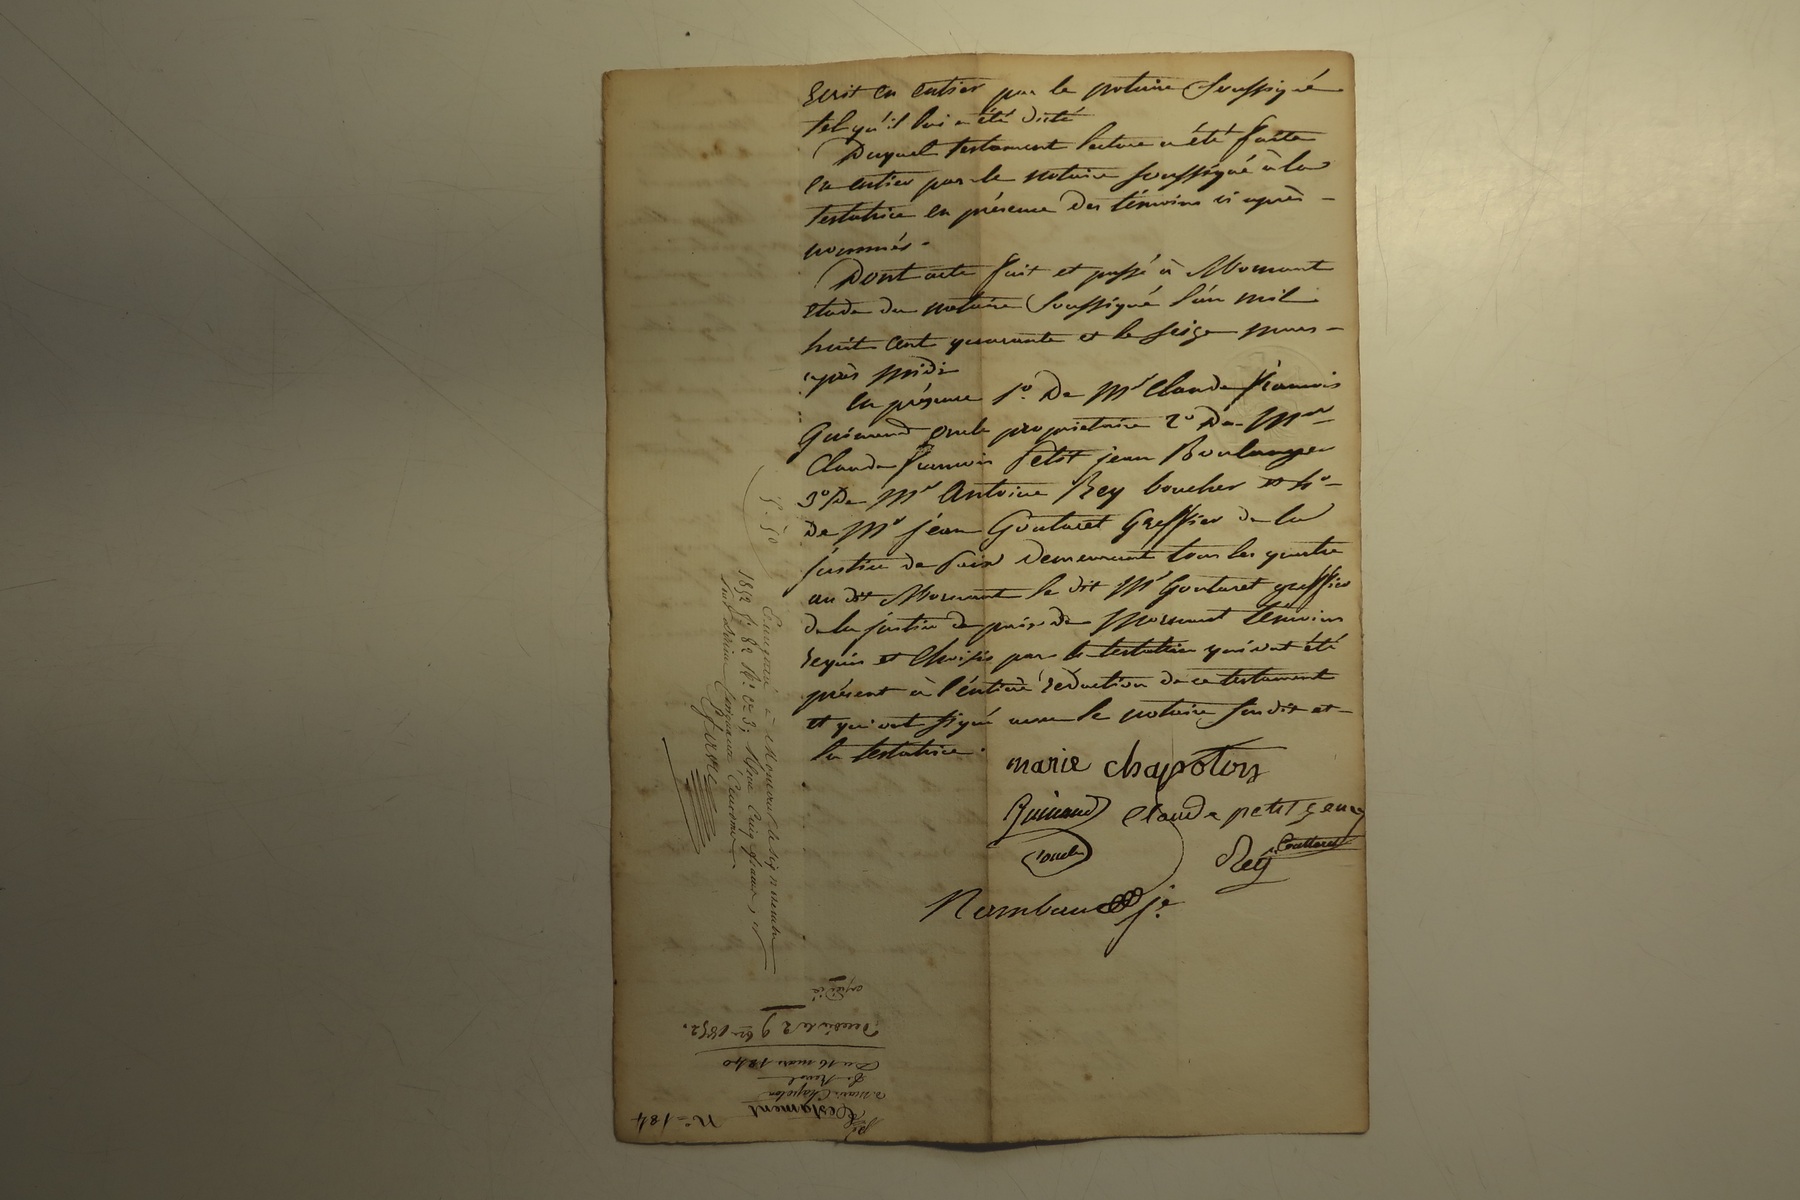 Ecrit en entier par le notaire soussigné
tel qu'il lui a été dicté
Duquel testament lecture a été faite
en entier par le notaire soussigné à la
testatrice en présence des témoins ci après -
nommés.
Dont acte fait et passé à Mornant
étude du notaire soussigné l'an mil
huit cent quarante et le seize mars -
après midi
En présence 1º De Mr Claude François
Guinand propriétaire 2º De Mr
Claude François Petit jean Boulanger
3º De Mr Antoine Rey boucher et 4º -
de Mr jean Goutaret Greffier de la
justice de Paix demeurant tous les quatre
au dit Mornant le dit Mr Goutaret greffier
de la justice de paix de Mornant témoins
requis et choisis par la testatrice qui ont été
présent à l'entière rédaction de ce testament
et qui ont signé avec le notaire susdit et -
la testatrice.
marie chapoton
Guinand Claude petit jean
Rey Goutaret
1852 fo 82
Testament
Du 16 mars 1840
Décédée le 2 9bre 1852.
Nº 184